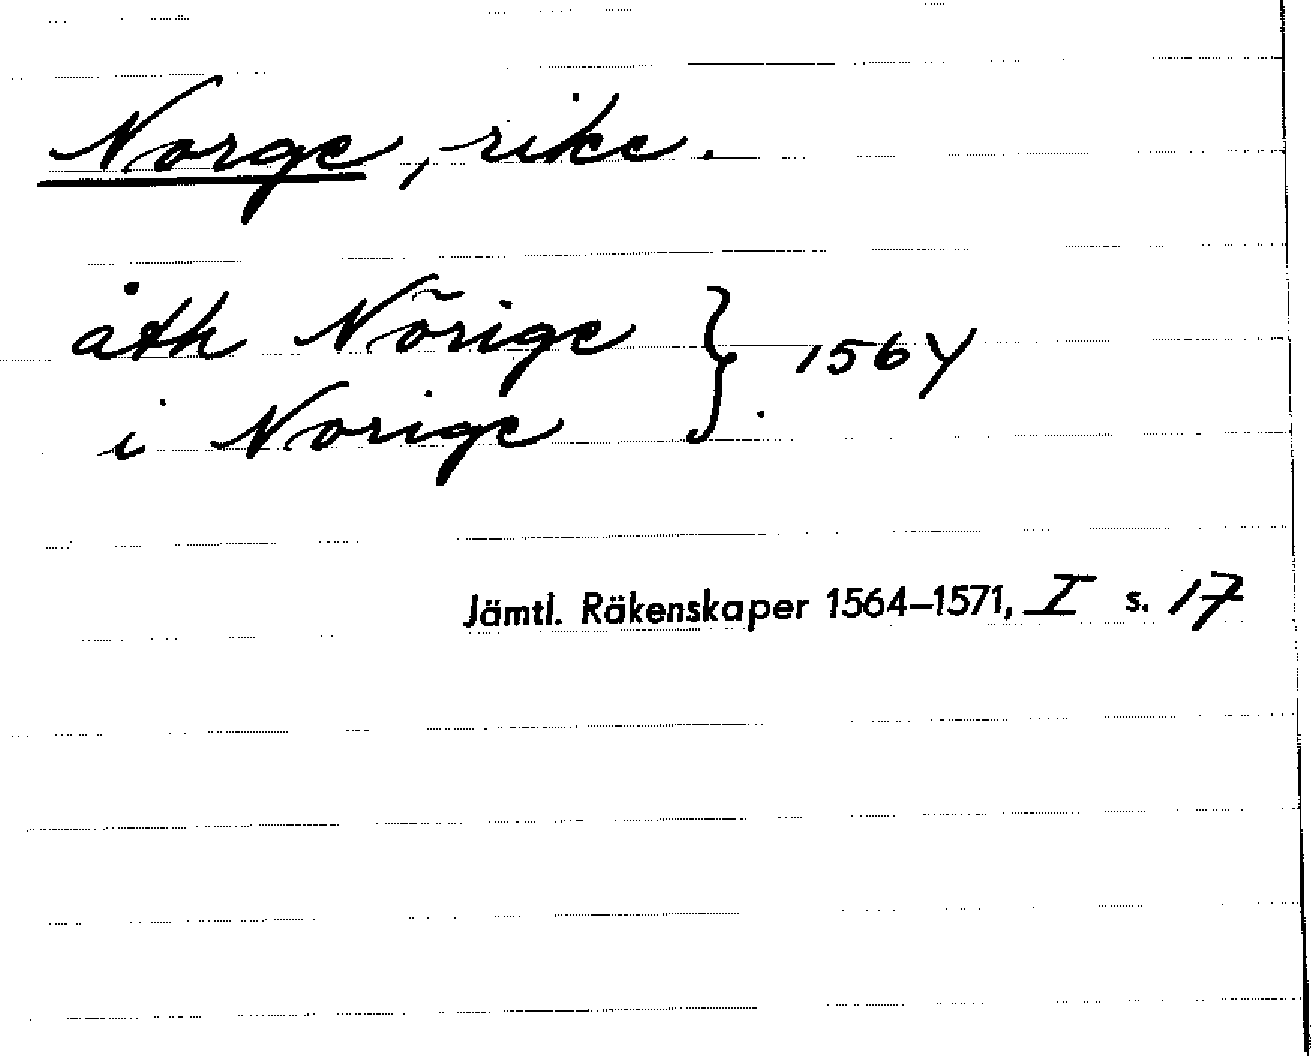 Norge, rike.
åth Nõrige } 1564
i Norige
Jämtl. Räkenskaper 1564–1571, I s. 17